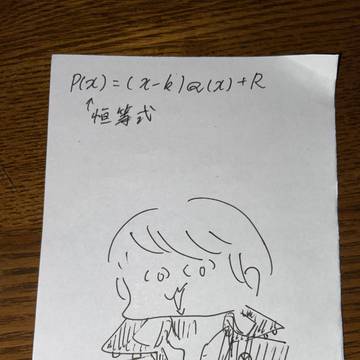 P(x)=(x-k)Q(x)+R
↑
恒等式